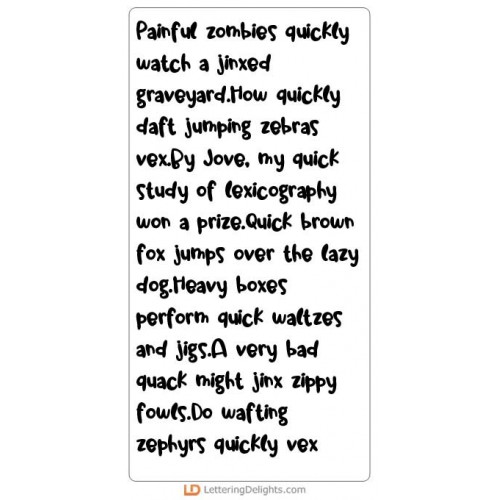 Painful zombies quickly
watch a jinxed
graveyard.How quickly
daft jumping zebras
vex.By Jove, my quick
study of lexicography
won a prize.Quick brown
fox jumps over the lazy
dog.Heavy boxes
perform quick waltzes
and jigs.A very bad
quack might jinx zippy
fowls.Do wafting
zephyrs quickly vex
LD LetteringDelights.com